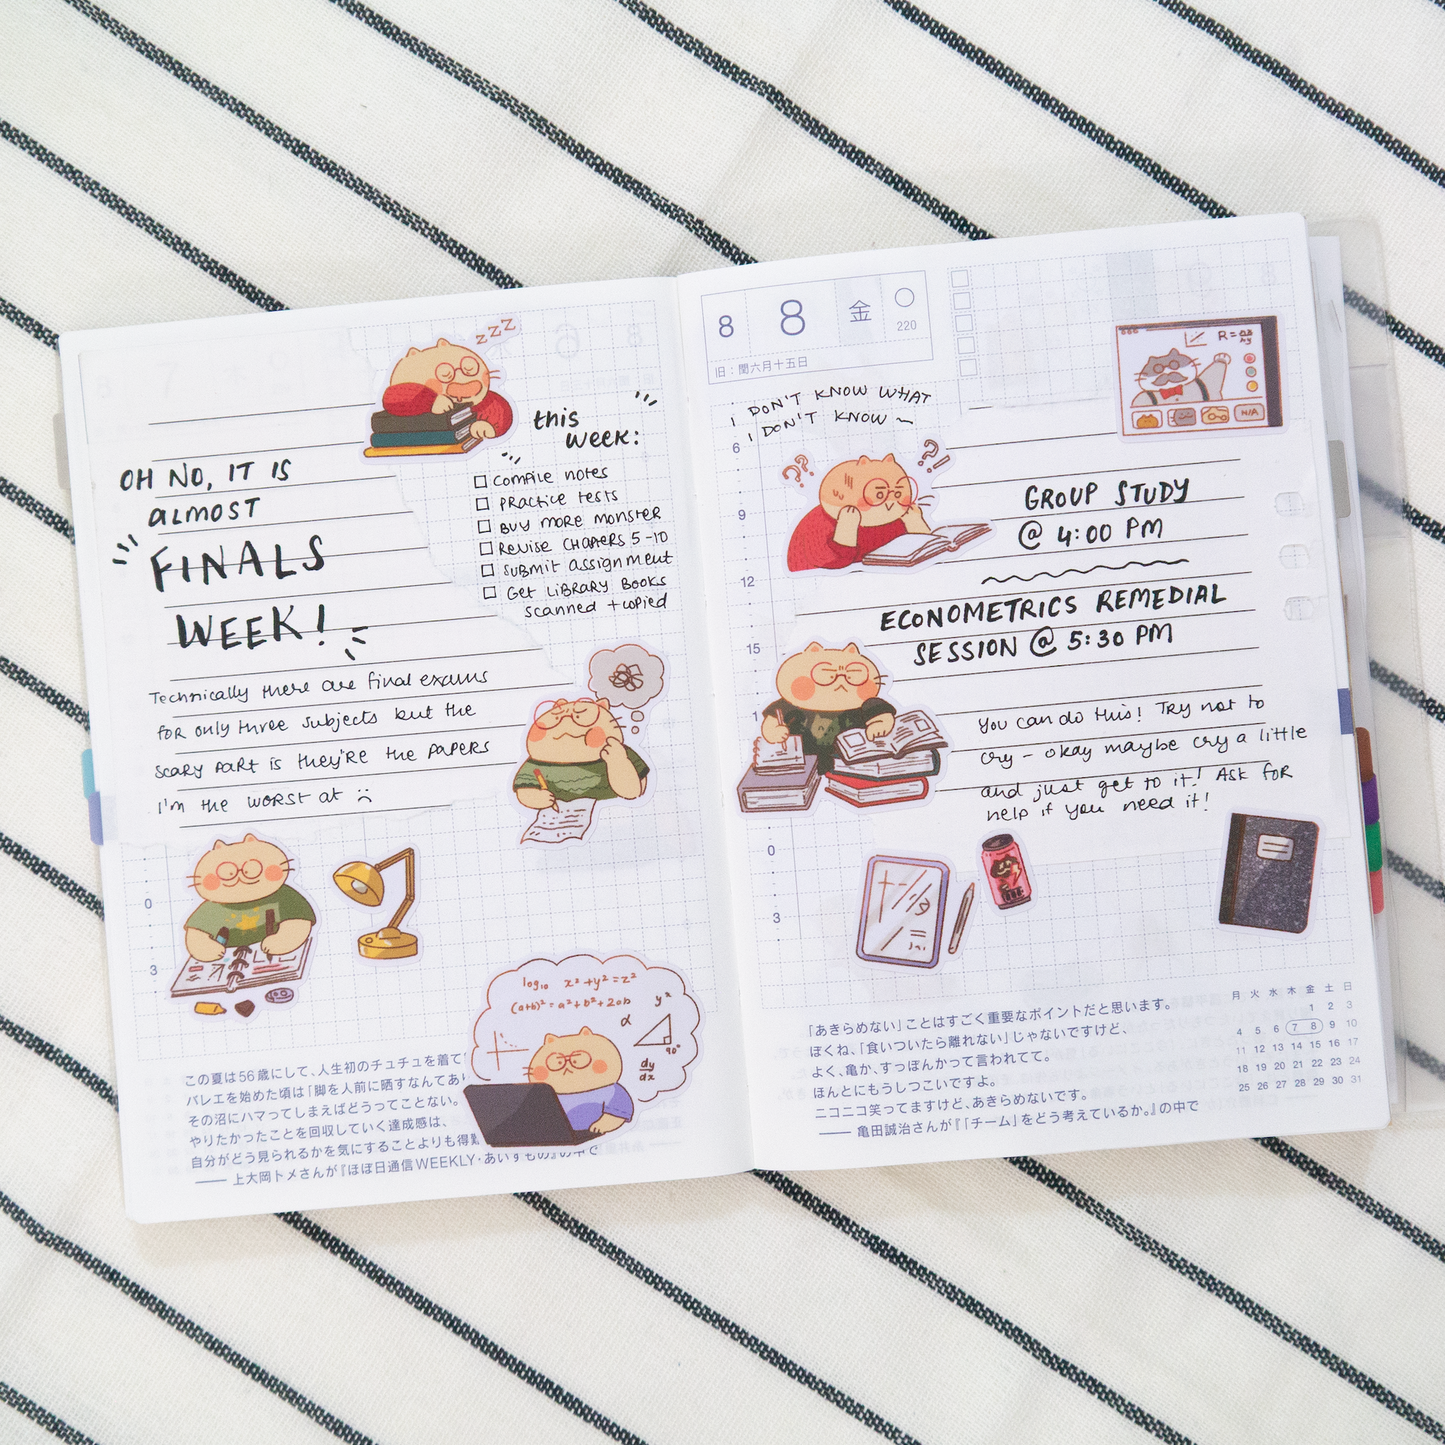 zzz
OH NO, IT IS
ALMOST
FINALS
WEEK!
this
week:
compile notes
practice tests
buy more monster
Revise chapters 5-10
submit assignment
Get library books
scanned + copied
Technically there are final exams
for only three subjects but the
scary part is they're the papers
I'm the worst at
0
3
log₁₀ x²+y²=z²
(a+b)²=a²+b²+2ab
y²
α
90°
dy
dx
この夏は56歳にして、人生初のチュチュを着て
バレエを始めた頃は「脚を人前に晒すなんてあ
その沼にハマってしまえばどうってことない。
やりたかったことを回収していく達成感は、
自分がどう見られるかを気にすることよりも得
── 上大岡トメさんが『ほぼ日通信WEEKLY・あいすもの』の中で
8 8 金 220
旧：閏六月十五日
I DON'T KNOW WHAT
I DON'T KNOW ~
6
9
12
15
0
3
??
?!
R=
N/A
GROUP STUDY
@ 4:00 PM
ECONOMETRICS REMEDIAL
SESSION @ 5:30 PM
you can do this! Try not to
cry - okay maybe cry a little
and just get to it! Ask for
help if you need it!
「あきらめない」ことはすごく重要なポイントだと思います。
ぼくね、「食いついたら離れない」じゃないですけど、
よく、亀か、すっぽんかって言われてて。
ほんとにもうしつこいですよ。
ニコニコ笑ってますけど、あきらめないです。
── 亀田誠治さんが『「チーム」をどう考えているか。』の中で
月 火 水 木 金 土 日
1 2 3
4 5 6 7 8 9 10
11 12 13 14 15 16 17
18 19 20 21 22 23 24
25 26 27 28 29 30 31